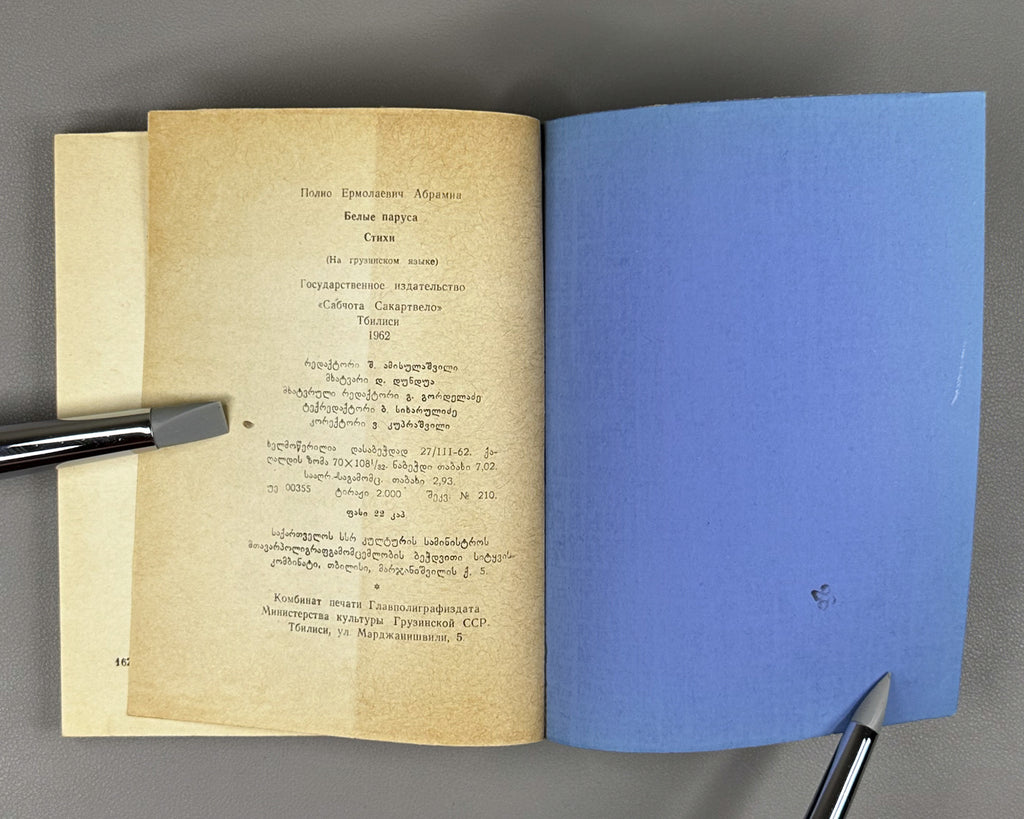 Полио Ермолаевич Абрамиа
Белые паруса
Стихи
(На грузинском языке)
Государственное издательство
«Сабчота Сакартвело»
Тбилиси
1962
რედაქტორი შ. ამისულაშვილი
მხატვარი დ. დუნდუა
მხატვრული რედაქტორი გ. გორდელაძე
ტექრედაქტორი ბ. სიხარულიძე
კორექტორი ვ. კუპრაშვილი
ხელმოწერილია დასაბეჭდად 27/III-62. ქა-
ღალდის ზომა 70×108¹/₃₂. ნაბეჭდი თაბახი 7,02.
სააღრ.-საგამომც. თაბახი 2,93.
უე 00355 ტირაჟი 2.000 შეკვ. № 210.
ფასი 22 კაპ.
საქართველოს სსრ კულტურის სამინისტროს
მთავარპოლიგრაფგამომცემლობის ბეჭდვითი სიტყვის
კომბინატი, თბილისი, მარჯანიშვილის ქ. 5.
*
Комбинат печати Главполиграфиздата
Министерства культуры Грузинской ССР.
Тбилиси, ул. Марджанишвили, 5
162